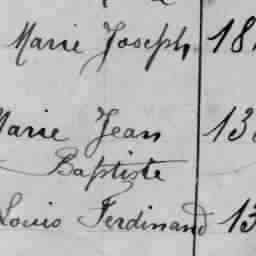 Marie Joseph 18
Marie Jean 13
Baptiste
Louis Ferdinand 13